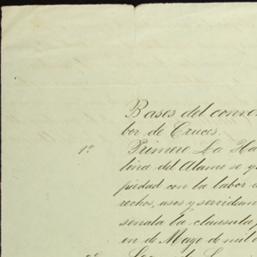 Bases del conve
bor de Cruces.
1º Primero La Ha
lina del Alamo se
piedad con la labor
rechos, usos y servidum
señala la clausula
en de Mayo de mil